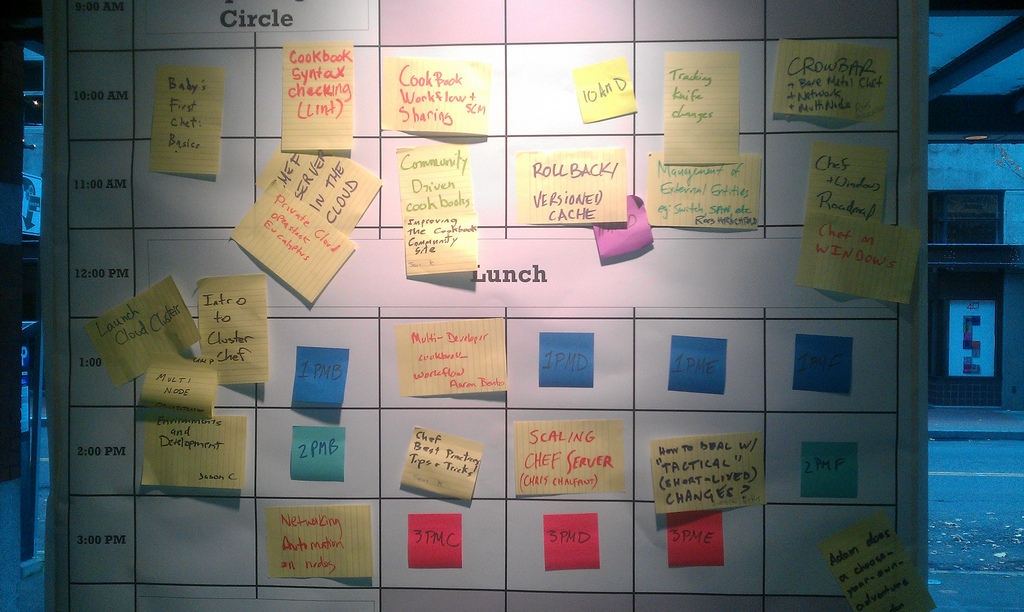 9:00 AM
Circle
10:00 AM
Baby's
First
Chef:
Basics
Cookbook
Syntax
checking
(Lint)
CookBook
Workflow +
Sharing SCM
10 AM D
Tracking
Knife
changes
CROWBAR
+ Bare Metal Chef
+ Network
+ MultiNode
11:00 AM
SERVER
IN THE
CLOUD
Private Cloud
openstack
Eucalyptus
Community
Driven
cookbooks
Improving
the Cookbook
Community
Site
ROLLBACK/
VERSIONED
CACHE
Management of
External Entities
eg: Switch, SAN, etc
Chef
+ Windows
Roadmap
Chef on
WINDOWS
12:00 PM
Lunch
1:00
Launch
Cloud Cluster
Intro
to
Cluster
Chef
MULTI
NODE
1PMB
Multi-Developer
cookbook
workflow
Aaron
1PMD
1PME
1PMF
2:00 PM
Environments
and
Development
Jason C
2PMB
Chef
Best Practices
Tips + Tricks
SCALING
CHEF SERVER
(CHRIS CHALFANT)
HOW TO DEAL W/
"TACTICAL"
(SHORT-LIVED)
CHANGES?
2PMF
3:00 PM
Networking
Automation
on nodes
3PMC
3PMD
3PME
Adam does
a choose-
your-own-
adventure